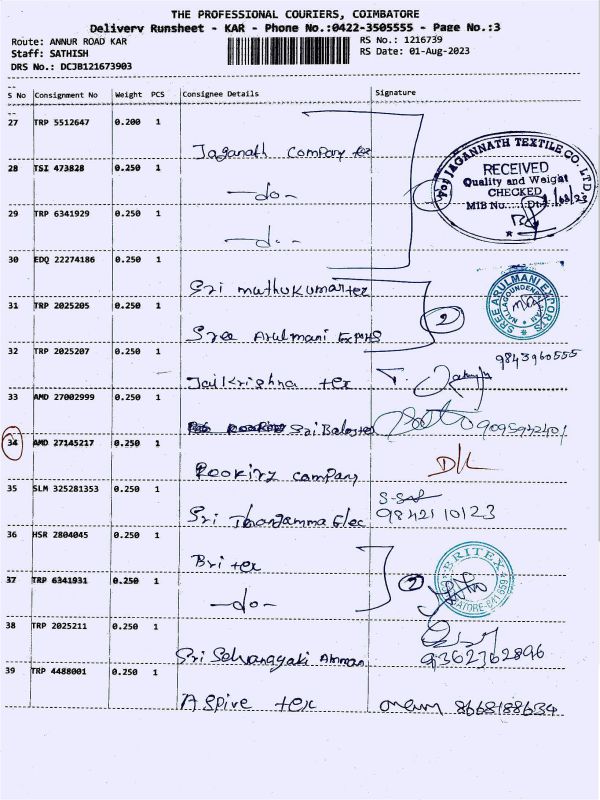 THE PROFESSIONAL COURIERS, COIMBATORE
Delivery Runsheet - KAR - Phone No.:0422-3505555 - Page No.:3
Route: ANNUR ROAD KAR
RS No.: 1216739
Staff: SATHISH
RS Date: 01-Aug-2023
DRS No.: DCJB121673903
S No Consignment No Weight PCS Consignee Details Signature
27 TRP 5512647 0.200 1
Jaganath company tex
For JAGANNATH TEXTILE CO. LTD
RECEIVED
Quality and Weight
CHECKED
MIB No..... Dt.
28 TSI 473828 0.250 1
-do-
29 TRP 6341929 0.250 1
-do-
30 EDQ 22274186 0.250 1
Sri muthukumar tex
31 TRP 2025205 0.250 1
Sree Arulmani Exports
2
SREE ARULMANI EXPORTS
32 TRP 2025207 0.250 1
Jaikrishna tex
9843960555
33 AMD 27002999 0.250 1
Sri Balas tex
9095942401
34 AMD 27145217 0.250 1
Rookirz company
D/L
35 SLM 325281353 0.250 1
Sri Thangamma Elec
9842110123
36 HSR 2804045 0.250 1
Bri tex
2
BRITEX
37 TRP 6341931 0.250 1
-do-
38 TRP 2025211 0.250 1
Sri Selvanayaki Amman
9362362896
39 TRP 4488001 0.250 1
Aspire tex
8668188634